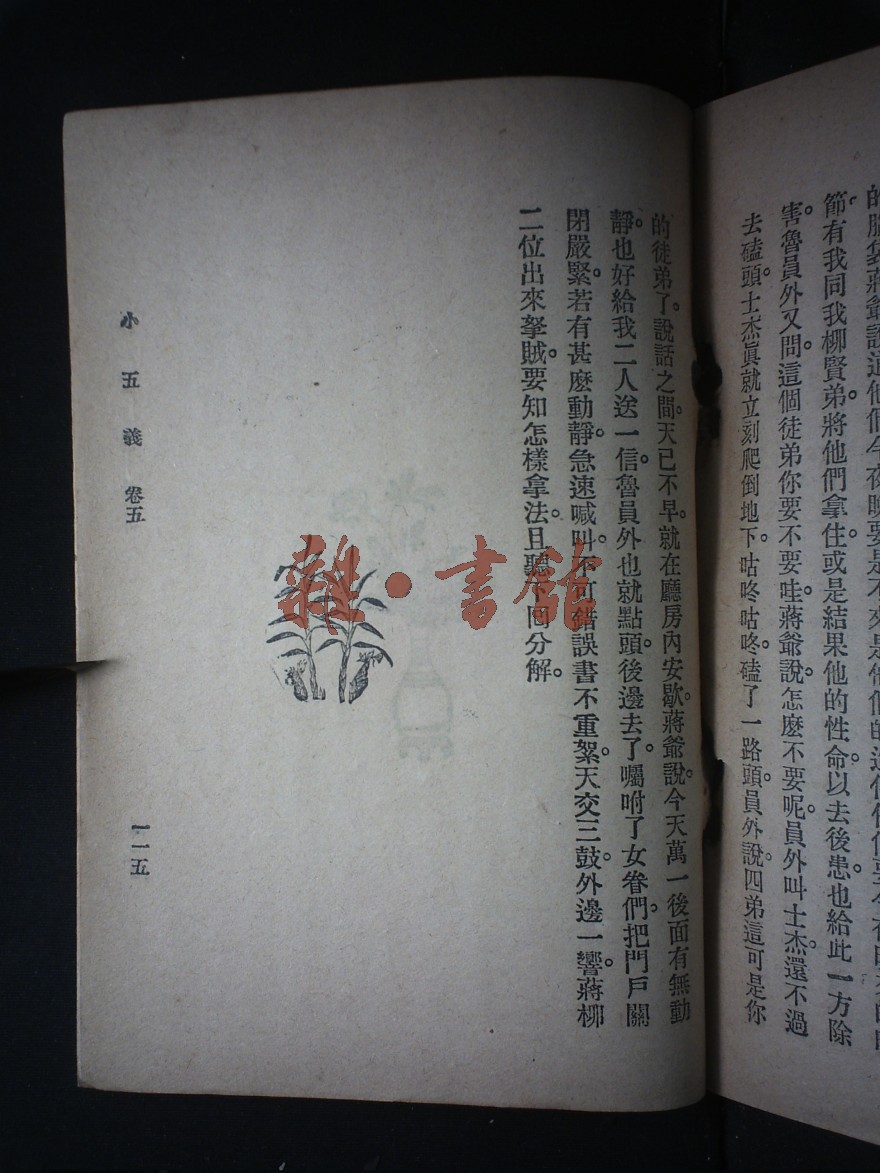 節有我同我柳賢弟。將他們拿住。或是結果他的性命以去後患。也給此一方除
害。魯員外又問。這個徒弟你要不要哇。蔣爺說。怎麼不要呢。員外叫士杰。還不過
去磕頭。士杰眞就立刻爬倒地下。咕咚咕咚。磕了一路頭。員外說。四弟這可是你
的徒弟了。說話之間。天已不早。就在廳房內安歇。蔣爺說。今天萬一後面有無動
靜。也好給我二人送一信。魯員外也就點頭。後邊去了。囑咐了女眷們。把門戶關
閉嚴緊。若有甚麼動靜。急速喊叫。不可錯誤。書不重絮。天交三鼓。外邊一響。蔣柳
二位出來拏賊。要知怎樣拿法。且聽下回分解。
小五義 卷五
一一五
雜·書館